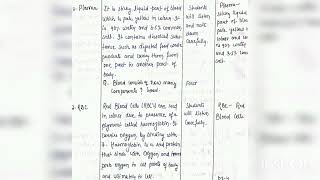 2. Plasma
It is sticky liquid part of blood
which is pale yellow in colour. It
is 90% water and
It contains dissolved substance
such as digested food waste
products and carry them from
one part to another part of
body.
Students
will listen
and note
down
carefully.
Plasma-
sticky liquid
part of blood
pale yellow
in colour and
is 90% water
and
Q. Blood consists of how many
components? Name.
Four
3. RBC
Red Blood Cells (RBC's) are red
in colour due to presence of a
pigment called haemoglobin. It
carries oxygen by binding with
it. Haemoglobin is a protein
that binds with Oxygen and
oxygen to all parts of body
and ultimately to cell.
Students
will listen
carefully.
RBC- Red
Blood Cells